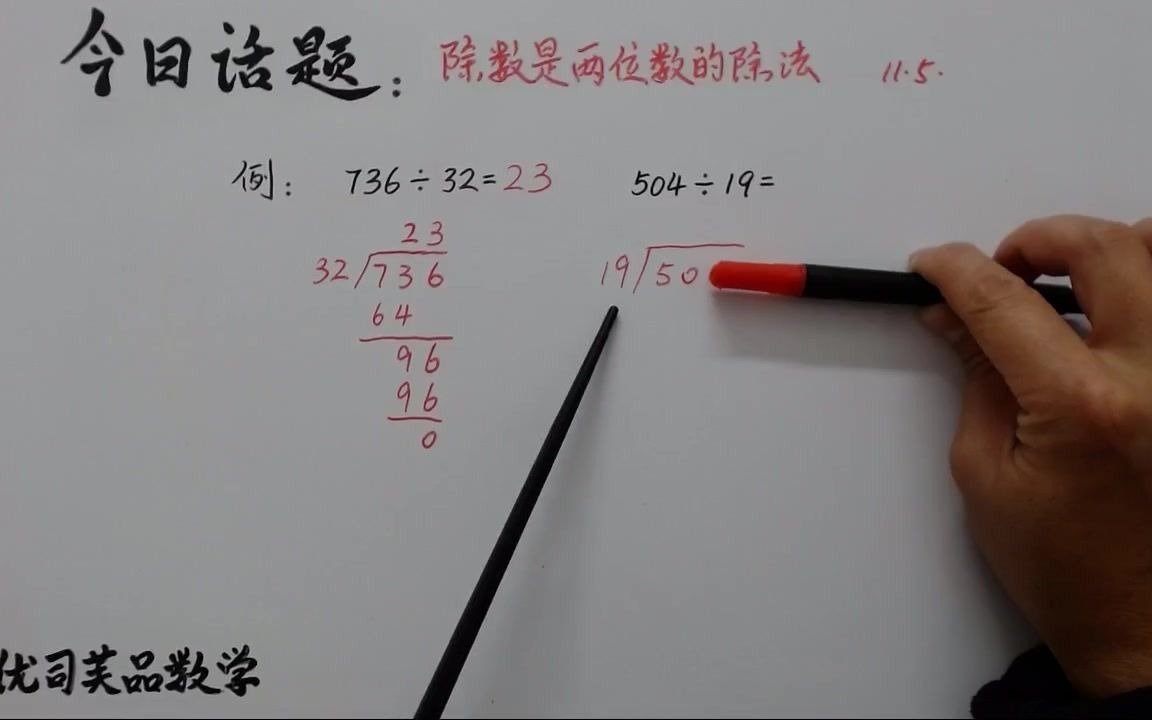 今日话题：除数是两位数的除法 11.5.
例： 736÷32=23 504÷19=
23
32 736 19 50
64
96
96
0
优司芙品数学